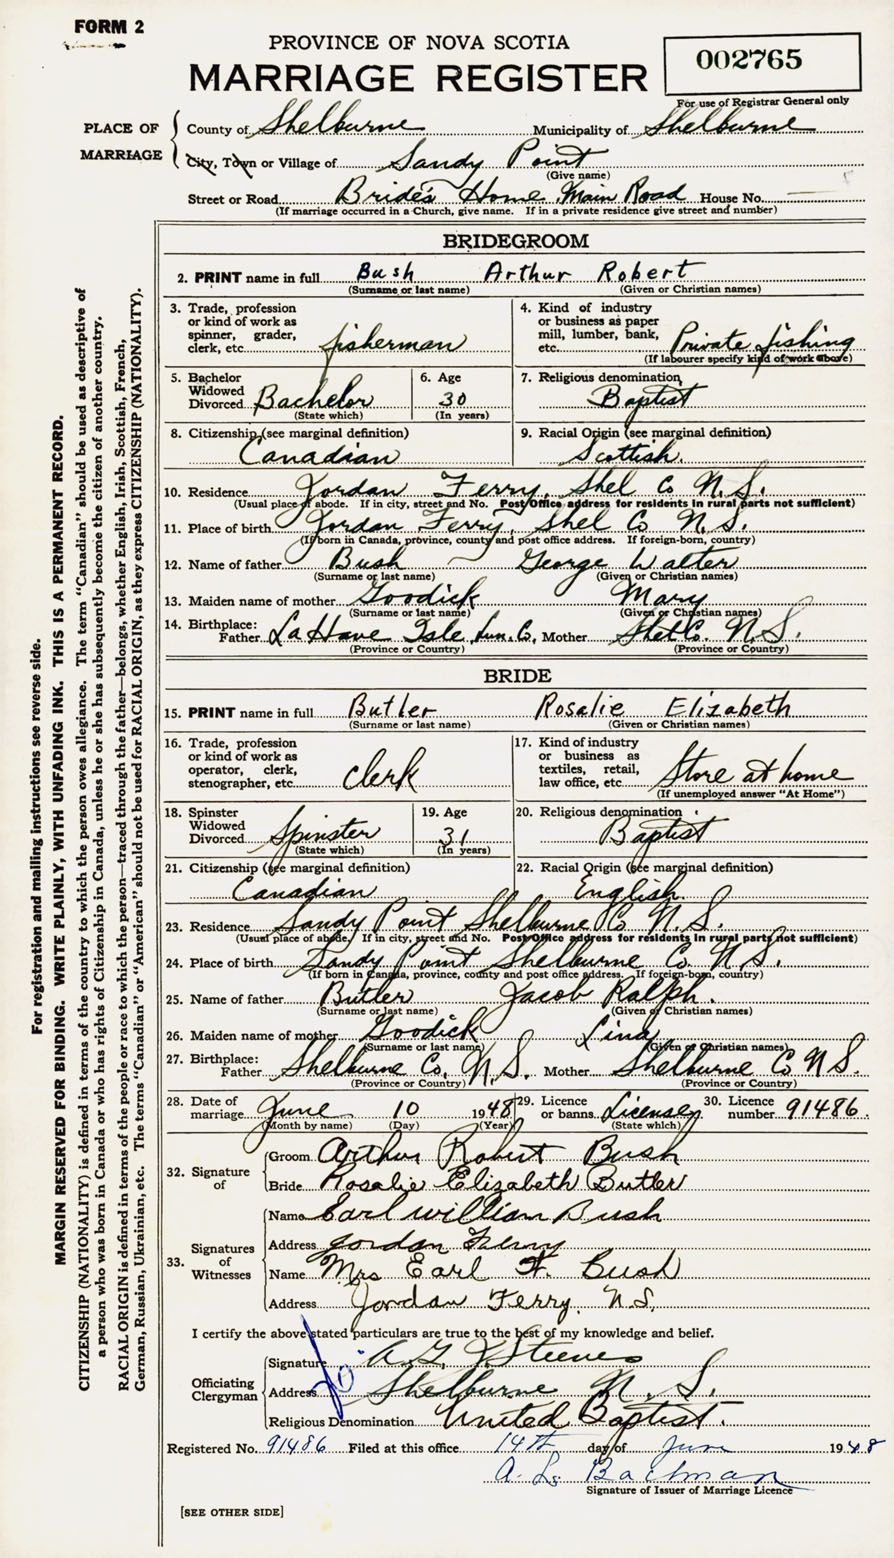 FORM 2
PROVINCE OF NOVA SCOTIA
MARRIAGE REGISTER
002765
For use of Registrar General only
PLACE OF MARRIAGE
County of Shelburne Municipality of Shelburne
City, Town or Village of Sandy Point
(Give name)
Street or Road Bride's Home, Main Road House No.
(If marriage occurred in a Church, give name. If in a private residence give street and number)
BRIDEGROOM
2. PRINT name in full Bush Arthur Robert
(Surname or last name) (Given or Christian names)
3. Trade, profession or kind of work as spinner, grader, clerk, etc. fisherman
4. Kind of industry or business as paper mill, lumber, bank, etc. Private fishing
(If labourer specify kind of work above)
5. Bachelor Widowed Divorced Bachelor
(State which)
6. Age 30
(In years)
7. Religious denomination Baptist
8. Citizenship (see marginal definition) Canadian
9. Racial Origin (see marginal definition) Scottish.
10. Residence Jordan Ferry, Shel Co N.S.
(Usual place of abode. If in city, street and No. Post Office address for residents in rural parts not sufficient)
11. Place of birth Jordan Ferry, Shel Co N.S.
(If born in Canada, province, county and post office address. If foreign-born, country)
12. Name of father Bush George Walter
(Surname or last name) (Given or Christian names)
13. Maiden name of mother Goodick Mary
(Surname or last name) (Given or Christian names)
14. Birthplace: Father LaHave Isle, Lun. Co. Mother Shel Co. N.S.
(Province or Country) (Province or Country)
BRIDE
15. PRINT name in full Butler Rosalie Elizabeth
(Surname or last name) (Given or Christian names)
16. Trade, profession or kind of work as operator, clerk, stenographer, etc. Clerk
17. Kind of industry or business as textiles, retail, law office, etc. Store at home
(If unemployed answer "At Home")
18. Spinster Widowed Divorced Spinster
(State which)
19. Age 31
(In years)
20. Religious denomination Baptist
21. Citizenship (see marginal definition) Canadian
22. Racial Origin (see marginal definition) English.
23. Residence Sandy Point Shelburne Co N.S.
(Usual place of abode. If in city, street and No. Post Office address for residents in rural parts not sufficient)
24. Place of birth Sandy Point Shelburne Co. N.S.
(If born in Canada, province, county and post office address. If foreign-born, country)
25. Name of father Butler Jacob Ralph.
(Surname or last name) (Given or Christian names)
26. Maiden name of mother Goodick Lina
(Surname or last name) (Given or Christian names)
27. Birthplace: Father Shelburne Co. N.S. Mother Shelburne Co N S.
(Province or Country) (Province or Country)
28. Date of marriage June 10 1948
(Month by name) (Day) (Year)
29. Licence or banns License
(State which)
30. Licence number 91486.
32. Signature of
Groom Arthur Robert Bush
Bride Rosalie Elizabeth Butler
33. Signatures of Witnesses
Name Earl william Bush
Address Jordan Ferry
Name Mrs Earl W. Bush
Address Jordan Ferry. N.S.
I certify the above stated particulars are true to the best of my knowledge and belief.
Officiating Clergyman
Signature A. G. Steeves
Address Shelburne N.S.
Religious Denomination United Baptist.
Registered No. 91486 Filed at this office 14th day of June 1948
Signature of Issuer of Marriage Licence
[SEE OTHER SIDE]
For registration and mailing instructions see reverse side.
MARGIN RESERVED FOR BINDING. WRITE PLAINLY, WITH UNFADING INK. THIS IS A PERMANENT RECORD.
CITIZENSHIP (NATIONALITY) is defined in terms of the country to which the person owes allegiance. The term "Canadian" should be used as descriptive of
a person who was born in Canada or who has rights of Citizenship in Canada, unless he or she has subsequently become the citizen of another country.
RACIAL ORIGIN is defined in terms of the people or race to which the person—traced through the father—belongs, whether English, Irish, Scottish, French,
German, Russian, Ukrainian, etc. The terms "Canadian" or "American" should not be used for RACIAL ORIGIN, as they express CITIZENSHIP (NATIONALITY).